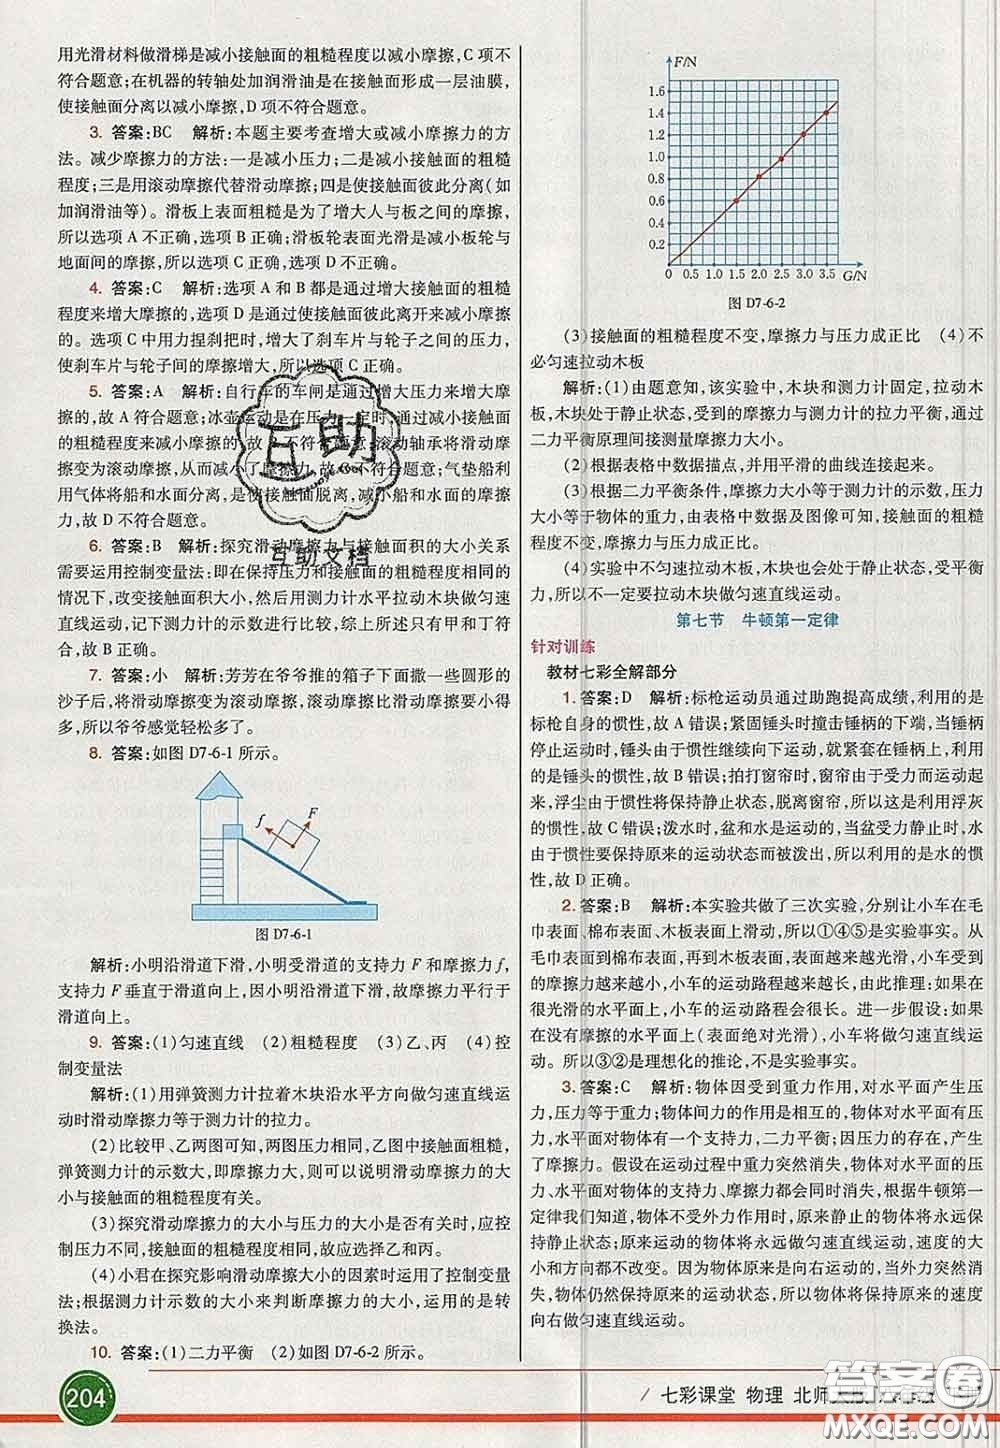 用光滑材料做滑梯是减小接触面的粗糙程度以减小摩擦,C 项不
符合题意;在机器的转轴处加润滑油是在接触面形成一层油膜,
使接触面分离以减小摩擦,D 项不符合题意。
3. 答案:BC 解析:本题主要考查增大或减小摩擦力的方
法。减少摩擦力的方法:一是减小压力;二是减小接触面的粗糙
程度;三是用滚动摩擦代替滑动摩擦;四是使接触面彼此分离(如
加润滑油等)。滑板上表面粗糙是为了增大人与板之间的摩擦,
所以选项 A 不正确,选项 B 正确;滑板轮表面光滑是减小板轮与
地面间的摩擦,所以选项 C 正确,选项 D 不正确。
4. 答案:C 解析:选项 A 和 B 都是通过增大接触面的粗糙
程度来增大摩擦的,选项 D 是通过使接触面彼此离开来减小摩擦
的。选项 C 中用力捏刹把时,增大了刹车片与轮子间的压力,
使刹车片与轮子间的摩擦增大,所以选项 C 正确。
5. 答案:A 解析:自行车的车闸是通过增大压力来增大摩
擦的,故 A 符合题意;冰壶运动是在压力一定时,通过减小接触面
的粗糙程度来减小摩擦的,故 不符合题意;滚动轴承将滑动摩
擦变为滚动摩擦,从而减小了摩擦力,故 不符合题意;气垫船利
用气体将船和水面分离,是使接触面脱离,减小船和水面的摩擦
力,故 D 不符合题意。
6. 答案:B 解析:探究滑动摩擦力与接触面积的大小关系
需要运用控制变量法:即在保持压力和接触面的粗糙程度相同的
情况下,改变接触面积大小,然后用测力计水平拉动木块做匀速
直线运动,记下测力计的示数进行比较,综上所述只有甲和丁符
合,故 B 正确。
7. 答案:小 解析:芳芳在爷爷推的箱子下面撒一些圆形的
沙子后,将滑动摩擦变为滚动摩擦,滚动摩擦比滑动摩擦要小得
多,所以爷爷感觉轻松多了。
8. 答案:如图 D7-6-1 所示。
f
F
图 D7-6-1
解析:小明沿滑道下滑,小明受滑道的支持力 F 和摩擦力 f,
支持力 F 垂直于滑道向上,因小明沿滑道下滑,故摩擦力平行于
滑道向上。
9. 答案:(1)匀速直线 (2)粗糙程度 (3)乙、丙 (4)控
制变量法
解析:(1)用弹簧测力计拉着木块沿水平方向做匀速直线运
动时滑动摩擦力等于测力计的拉力。
(2)比较甲、乙两图可知,两图压力相同,乙图中接触面粗糙,
弹簧测力计的示数大,即摩擦力大,则可以说明滑动摩擦力的大
小与接触面的粗糙程度有关。
(3)探究滑动摩擦力的大小与压力的大小是否有关时,应控
制压力不同,接触面的粗糙程度相同,故应选择乙和丙。
(4)小君在探究影响滑动摩擦大小的因素时运用了控制变量
法;根据测力计示数的大小来判断摩擦力的大小,运用的是转
换法。
10. 答案:(1)二力平衡 (2)如图 D7-6-2 所示。
204
F/N
1.6
1.4
1.2
1.0
0.8
0.6
0.4
0.2
0 0.5 1.0 1.5 2.0 2.5 3.0 3.5 G/N
图 D7-6-2
(3)接触面的粗糙程度不变,摩擦力与压力成正比 (4)不
必匀速拉动木板
解析:(1)由题意知,该实验中,木块和测力计固定,拉动木
板,木块处于静止状态,受到的摩擦力与测力计的拉力平衡,通过
二力平衡原理间接测量摩擦力大小。
(2)根据表格中数据描点,并用平滑的曲线连接起来。
(3)根据二力平衡条件,摩擦力大小等于测力计的示数,压力
大小等于物体的重力,由表格中数据及图像可知,接触面的粗糙
程度不变,摩擦力与压力成正比。
(4)实验中不匀速拉动木板,木块也会处于静止状态,受平衡
力,所以不一定要拉动木板做匀速直线运动。
第七节 牛顿第一定律
针对训练
教材七彩全解部分
1. 答案:D 解析:标枪运动员通过助跑提高成绩,利用的是
标枪自身的惯性,故 A 错误;紧固锤头时撞击锤柄的下端,当锤柄
停止运动时,锤头由于惯性继续向下运动,就紧套在锤柄上,利用
的是锤头的惯性,故 B 错误;拍打窗帘时,窗帘由于受力而运动起
来,浮尘由于惯性将保持静止状态,脱离窗帘,所以这是利用浮灰
的惯性,故 C 错误;泼水时,盆和水是运动的,当盆受力静止时,水
由于惯性要保持原来的运动状态而被泼出,所以利用的是水的惯
性,故 D 正确。
2. 答案:B 解析:本实验共做了三次实验,分别让小车在毛
巾表面、棉布表面、木板表面上滑动,所以①④⑤是实验事实。从
毛巾表面到棉布表面,再到木板表面,表面越来越光滑,小车受到
的摩擦力越来越小,小车的运动路程越来越长,由此推理:如果在
很光滑的水平面上,小车的运动路程会很长。进一步假设:如果在
没有摩擦的水平面上(表面绝对光滑),小车将做匀速直线运
动。所以③②是理想化的推论,不是实验事实。
3. 答案:C 解析:物体因受到重力作用,对水平面产生压
力,压力等于重力;物体间力的作用是相互的,物体对水平面有压
力,水平面对物体有一个支持力,二力平衡;因压力的存在,产生
了摩擦力。假设在运动过程中重力突然消失,物体对水平面的压
力、水平面对物体的支持力、摩擦力都会同时消失,根据牛顿第一
定律我们知道,物体不受外力作用时,原来静止的物体将永远保
持静止状态;原来运动的物体将永远做匀速直线运动,速度的大
小和方向都不改变。因为物体原来是向右运动的,当外力突然消
失时,物体仍然保持原来的运动状态,所以物体将保持原来的速度
向右做匀速直线运动。
七彩课堂 物理 北师大版
互助
互助文档
答案卷
MXQE.COM